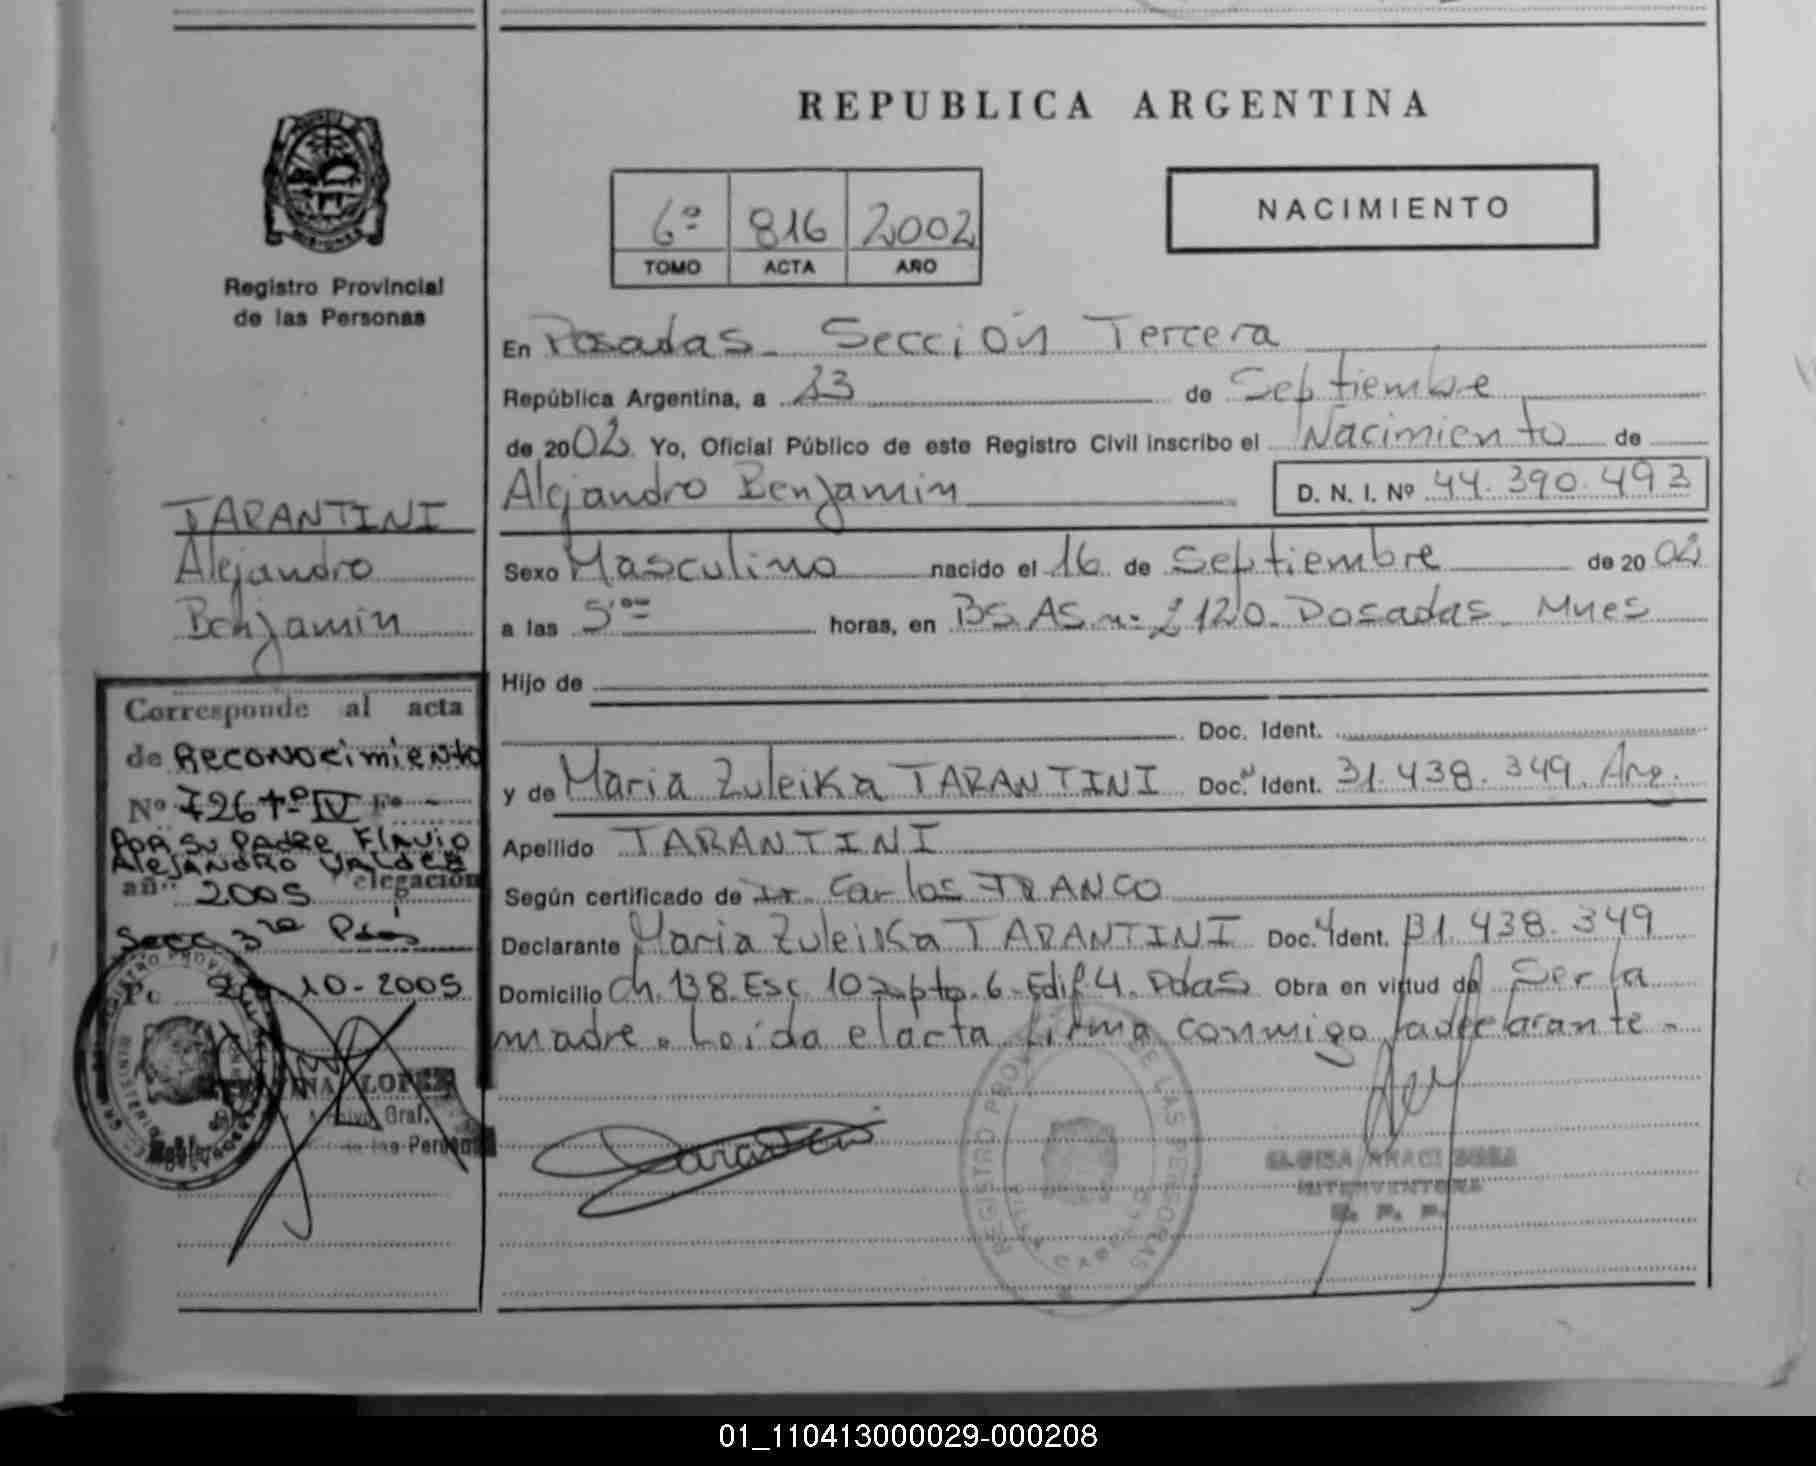 REPUBLICA ARGENTINA
NACIMIENTO
6º 816 2002
TOMO ACTA AÑO
Registro Provincial
de las Personas
En Posadas - Sección Tercera
República Argentina, a 23 de Septiembre
de 2002 Yo, Oficial Público de este Registro Civil inscribo el Nacimiento de
Alejandro Benjamin D. N. I. Nº 44.390.493
TARANTINI
Alejandro
Benjamin
Sexo Masculino nacido el 16 de Septiembre de 2002
a las 5'00 horas, en BS. AS. nº 2120. Posadas. Mnes
Hijo de
Doc. Ident.
y de Maria Zuleika TARANTINI Doc. Ident. 31.438.349. Arg.
Apellido TARANTINI
Según certificado de Dr. Carlos FRANCO
Declarante Maria Zuleika TARANTINI Doc. Ident. 31.438.349
Domicilio Ch. 138. Esc 10 Apto. 6 - Edif 4. Pdas Obra en virtud de Ser la
madre. Leída el acta firma conmigo la declarante.
Corresponde al acta
de Reconocimiento
Nº 726 Tº IV Fº -
POR SU PADRE FLAVIO
ALEJANDRO VALDEZ
año 2005 elegación
Secc 3ra Pdas
10-2005
LOPEZ
Archivo Gral.
de las Personas
REGISTRO PROVINCIAL DE LAS PERSONAS
VILLA CABELLO
INTERVENTORA
R. P. P.
01_110413000029-000208